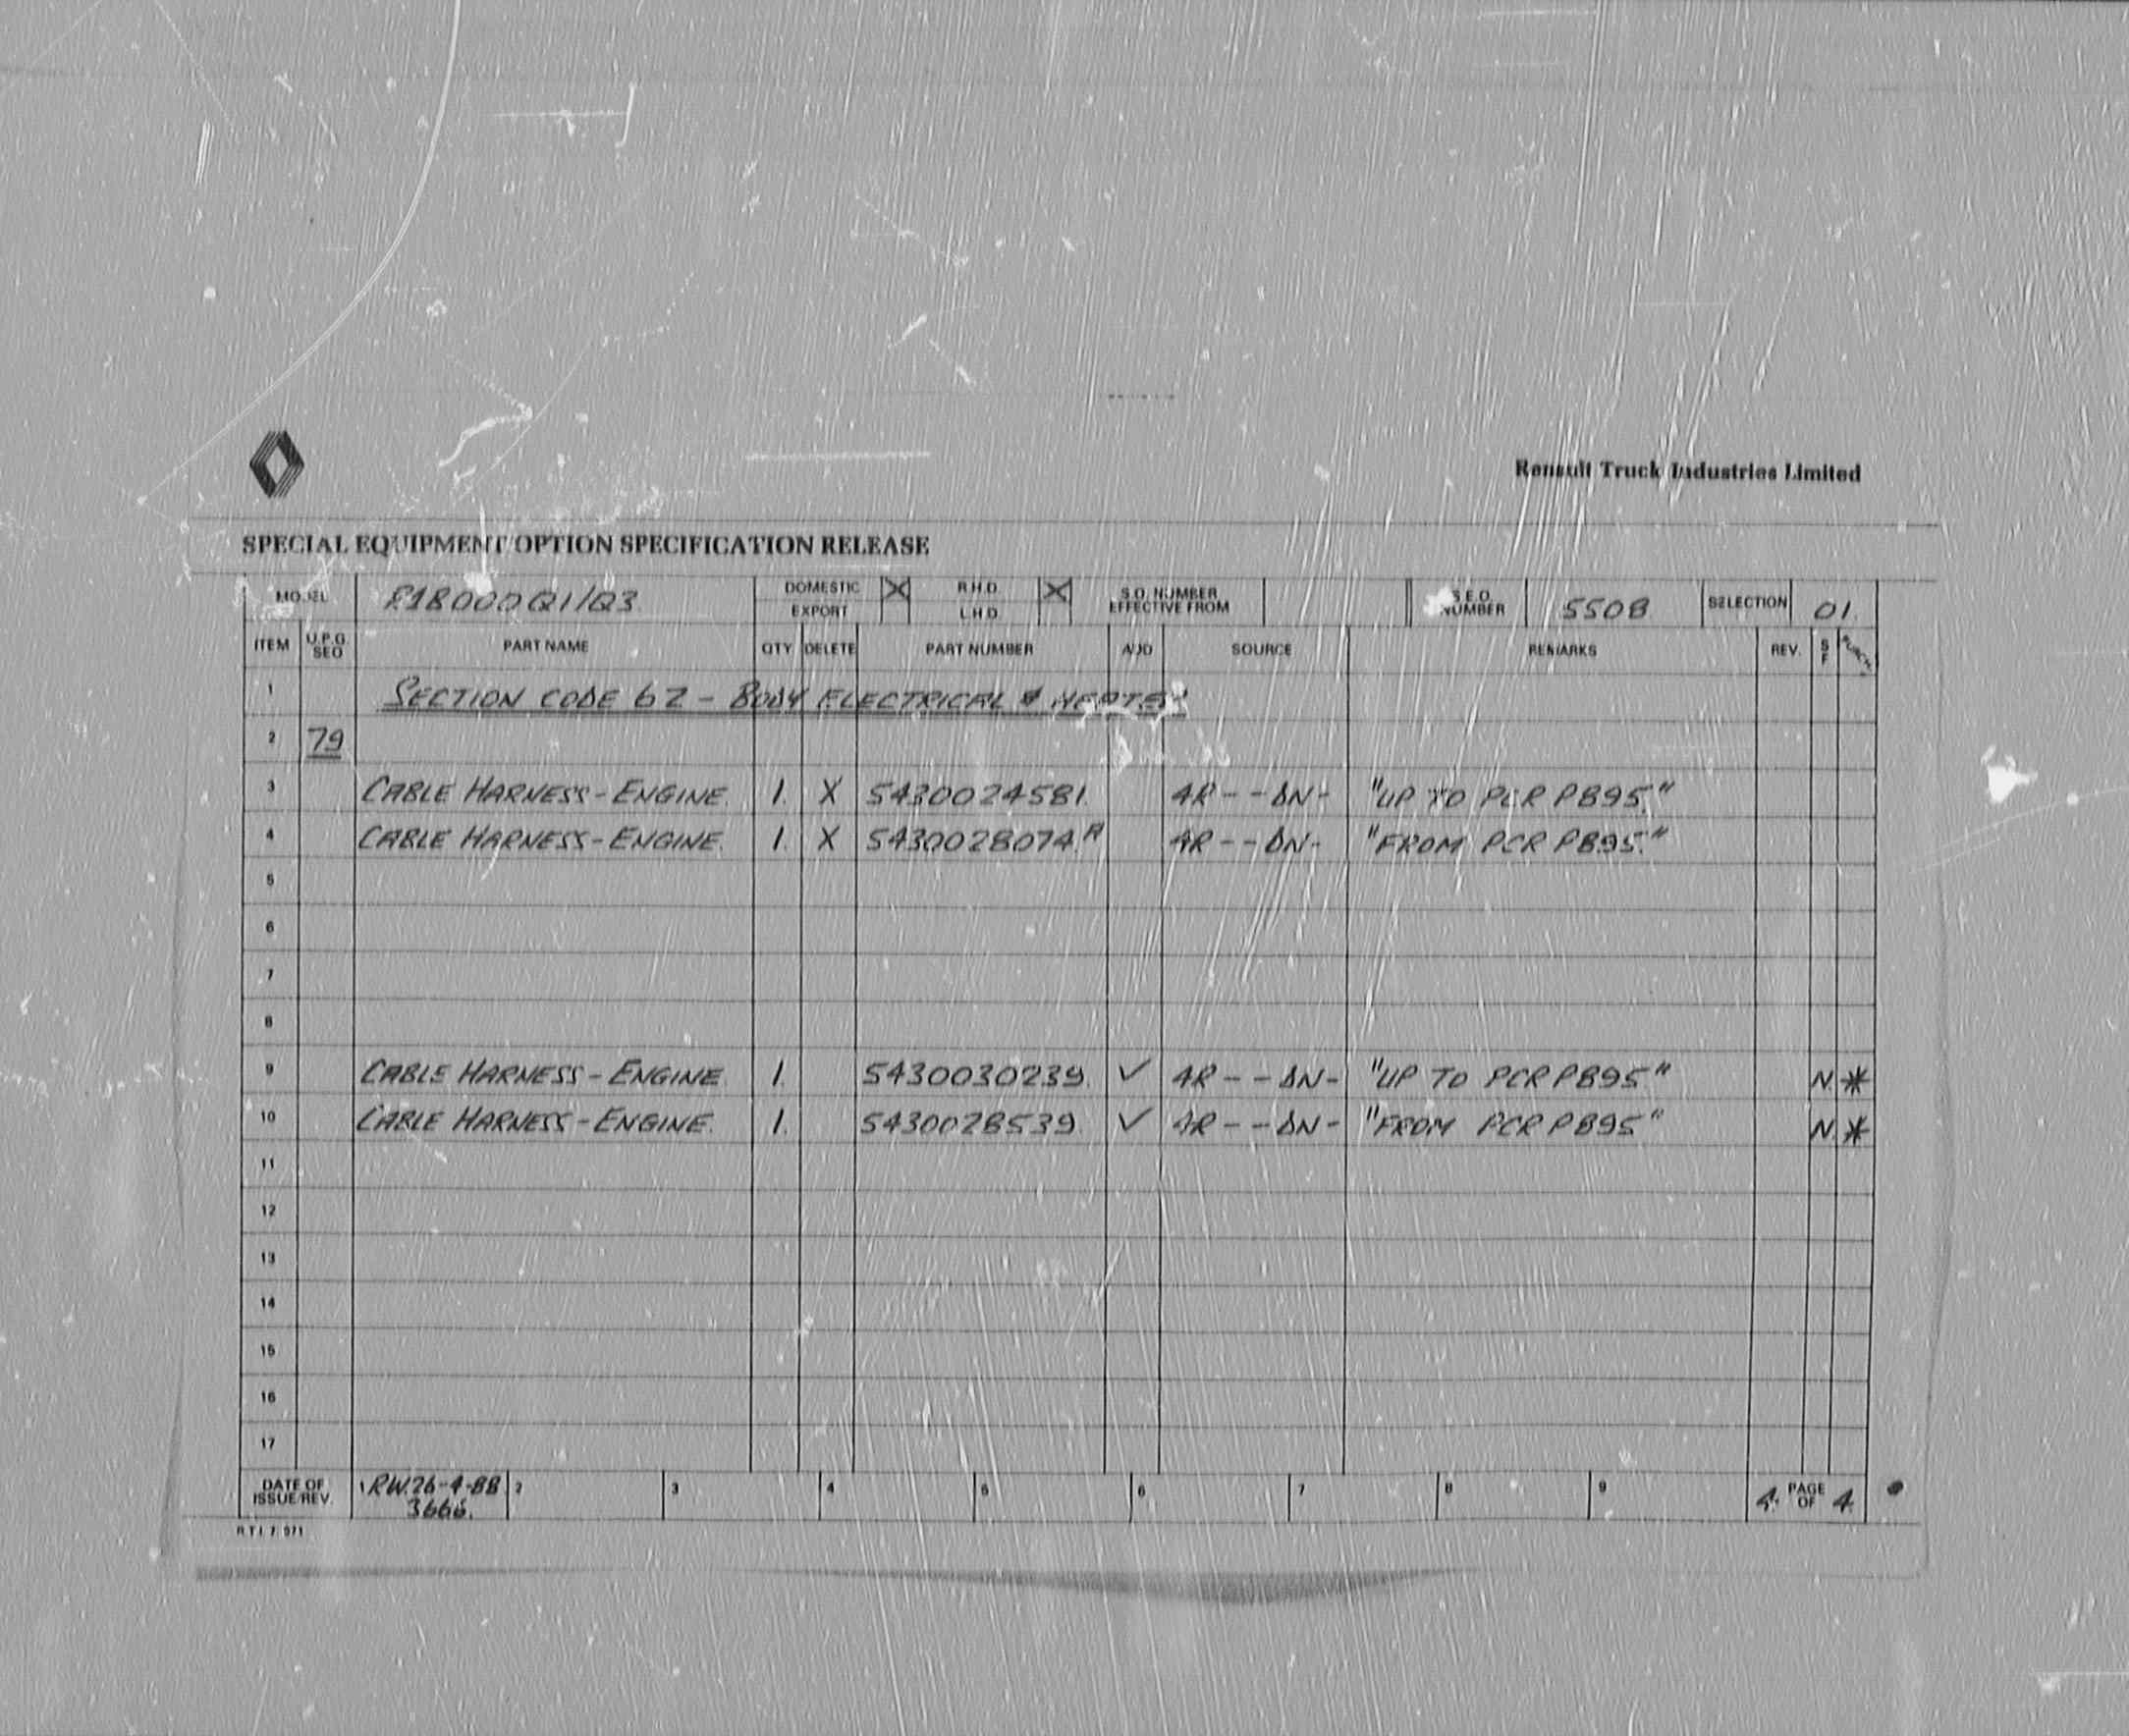 Renault Truck Industries Limited
SPECIAL EQUIPMENT OPTION SPECIFICATION RELEASE
MODEL R18000Q1/Q3 DOMESTIC X R.H.D. X S.O. NUMBER EFFECTIVE FROM S.E.O. NUMBER 5508 SELECTION 01.
EXPORT L.H.D.
ITEM U.P.G. SEQ PART NAME QTY DELETE PART NUMBER ADD SOURCE REMARKS REV. S F PUNCH
1 SECTION CODE 62 - BODY ELECTRICAL & HEATER
2 79
3 CABLE HARNESS - ENGINE. 1. X 5430024581. 4R - - DN - "UP TO PCR P895."
4 CABLE HARNESS - ENGINE. 1. X 5430028074.A 4R - - DN - "FROM PCR P895."
5
6
7
8
9 CABLE HARNESS - ENGINE. 1. 5430030239. ✓ 4R - - DN - "UP TO PCR P895" N. *
10 CABLE HARNESS - ENGINE. 1. 5430028539. ✓ 4R - - DN - "FROM PCR P895" N. *
11
12
13
14
15
16
17
DATE OF ISSUE/REV. 1 RW. 26-4-88 2 3 4 5 6 7 8 9 4. PAGE OF 4.
3666.
R.T.I. 7. 971